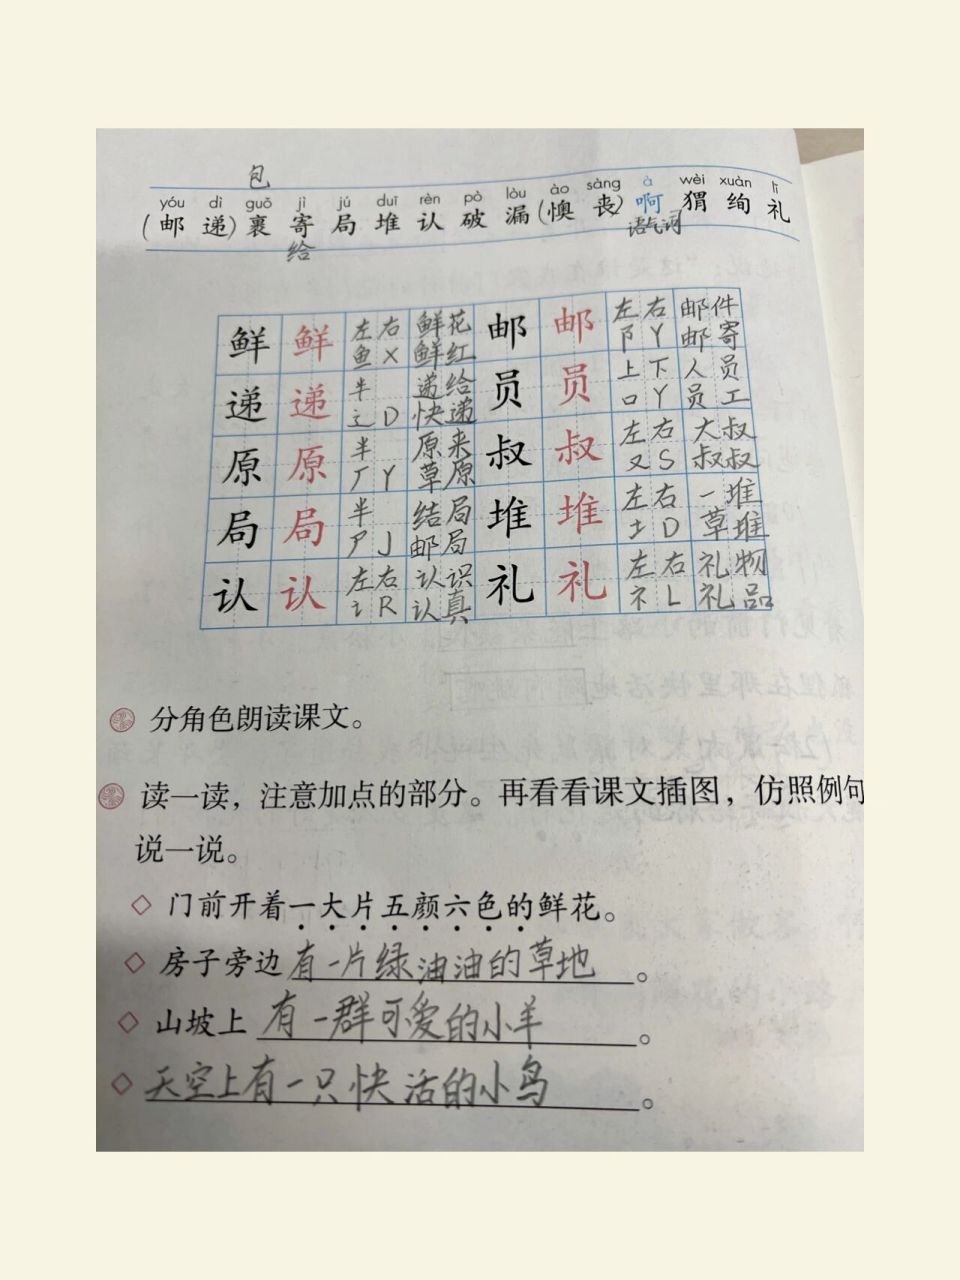 包
yóu dì guǒ jì jú duī rèn pò lòu ào sàng à wèi xuàn lǐ
(邮 递)裹 寄 局 堆 认 破 漏(懊 丧)啊 猬 绚 礼
给 语气词
鲜 鲜 左右 鲜花 邮 邮 左右 邮件
鱼 X 鲜红 阝 Y 邮寄
递 递 半 递给 员 员 上下 人员
辶 D 快递 口 Y 员工
原 原 半 原来 叔 叔 左右 大叔
厂 Y 草原 又 S 叔叔
局 局 半 结局 堆 堆 左右 一堆
尸 J 邮局 土 D 草堆
认 认 左右 认识 礼 礼 左右 礼物
讠 R 认真 礻 L 礼品
分角色朗读课文。
读一读，注意加点的部分。再看看课文插图，仿照例句
说一说。
◇ 门前开着一大片五颜六色的鲜花。
◇ 房子旁边有一片绿油油的草地。
◇ 山坡上有一群可爱的小羊。
◇ 天空上有一只快活的小鸟。